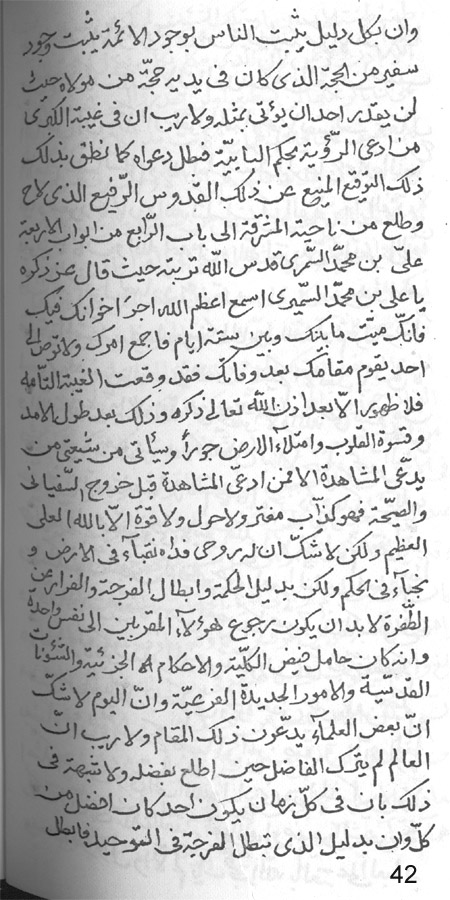 وان بكل دليل يثبت الناس بوجود الائمة يثبت وجود
سفير من الحجة الذى كان فى يديه حجة من مولاه حيث
لن يقدر احد ان يؤتى بمثله ولاريب ان فى غيبة الكبرى
من ادعى الرؤية بحكم البابية فبطل دعواه كما نطق بذلك
ذلك التوقيع المنيع عن ذلك القدوس الرفيع الذى لاح
وطلع من ناحية المشرقة الى باب الرابع من ابواب الاربعة
على بن محمد السمرى قدس الله تربته حيث قال عز ذكره
يا على بن محمد السميرى اسمع اعظم الله اجر اخوانك فيك
فانك ميت ما بينك وبين ستة ايام فاجمع امرك ولا توص الى
احد يقوم مقامك بعد وفاتك فقد وقعت الغيبة التامه
فلا ظهور الا بعد اذن الله تعالى ذكره وذلك بعد طول الامد
وقسوة القلوب وامتلاء الارض جورا وسيأتى من شيعتى من
يدعى المشاهدة الا فمن ادعى المشاهدة قبل خروج السفيانى
والصيحة فهو كذاب مفتر ولاحول ولا قوة الا بالله العلى
العظيم ولكن لاشك ان له روحى فداه نقبآء فى الارض و
نجبآء فى الحكم ولكن بدليل الحكمة وابطال الفرجة والفرار عن
الطفرة لابد ان يكون رجوع هؤلآء المقربين الى نفس واحدة
وانه كان حامل فيض الكلية والاحكام الجزئية والشئونات
القدسية والامور الجديدة الفرعية وان اليوم لاشك
ان بعض العلمآء يدعون ذلك المقام ولاريب ان
العالم لم يترك الفاضل حين اطلع بفضله ولا شبهة فى
ذلك بان فى كل زمان يكون احد كان افضل من
كل وان بدليل الذى تبطل الفرجة فى التوحيد فابطل
42